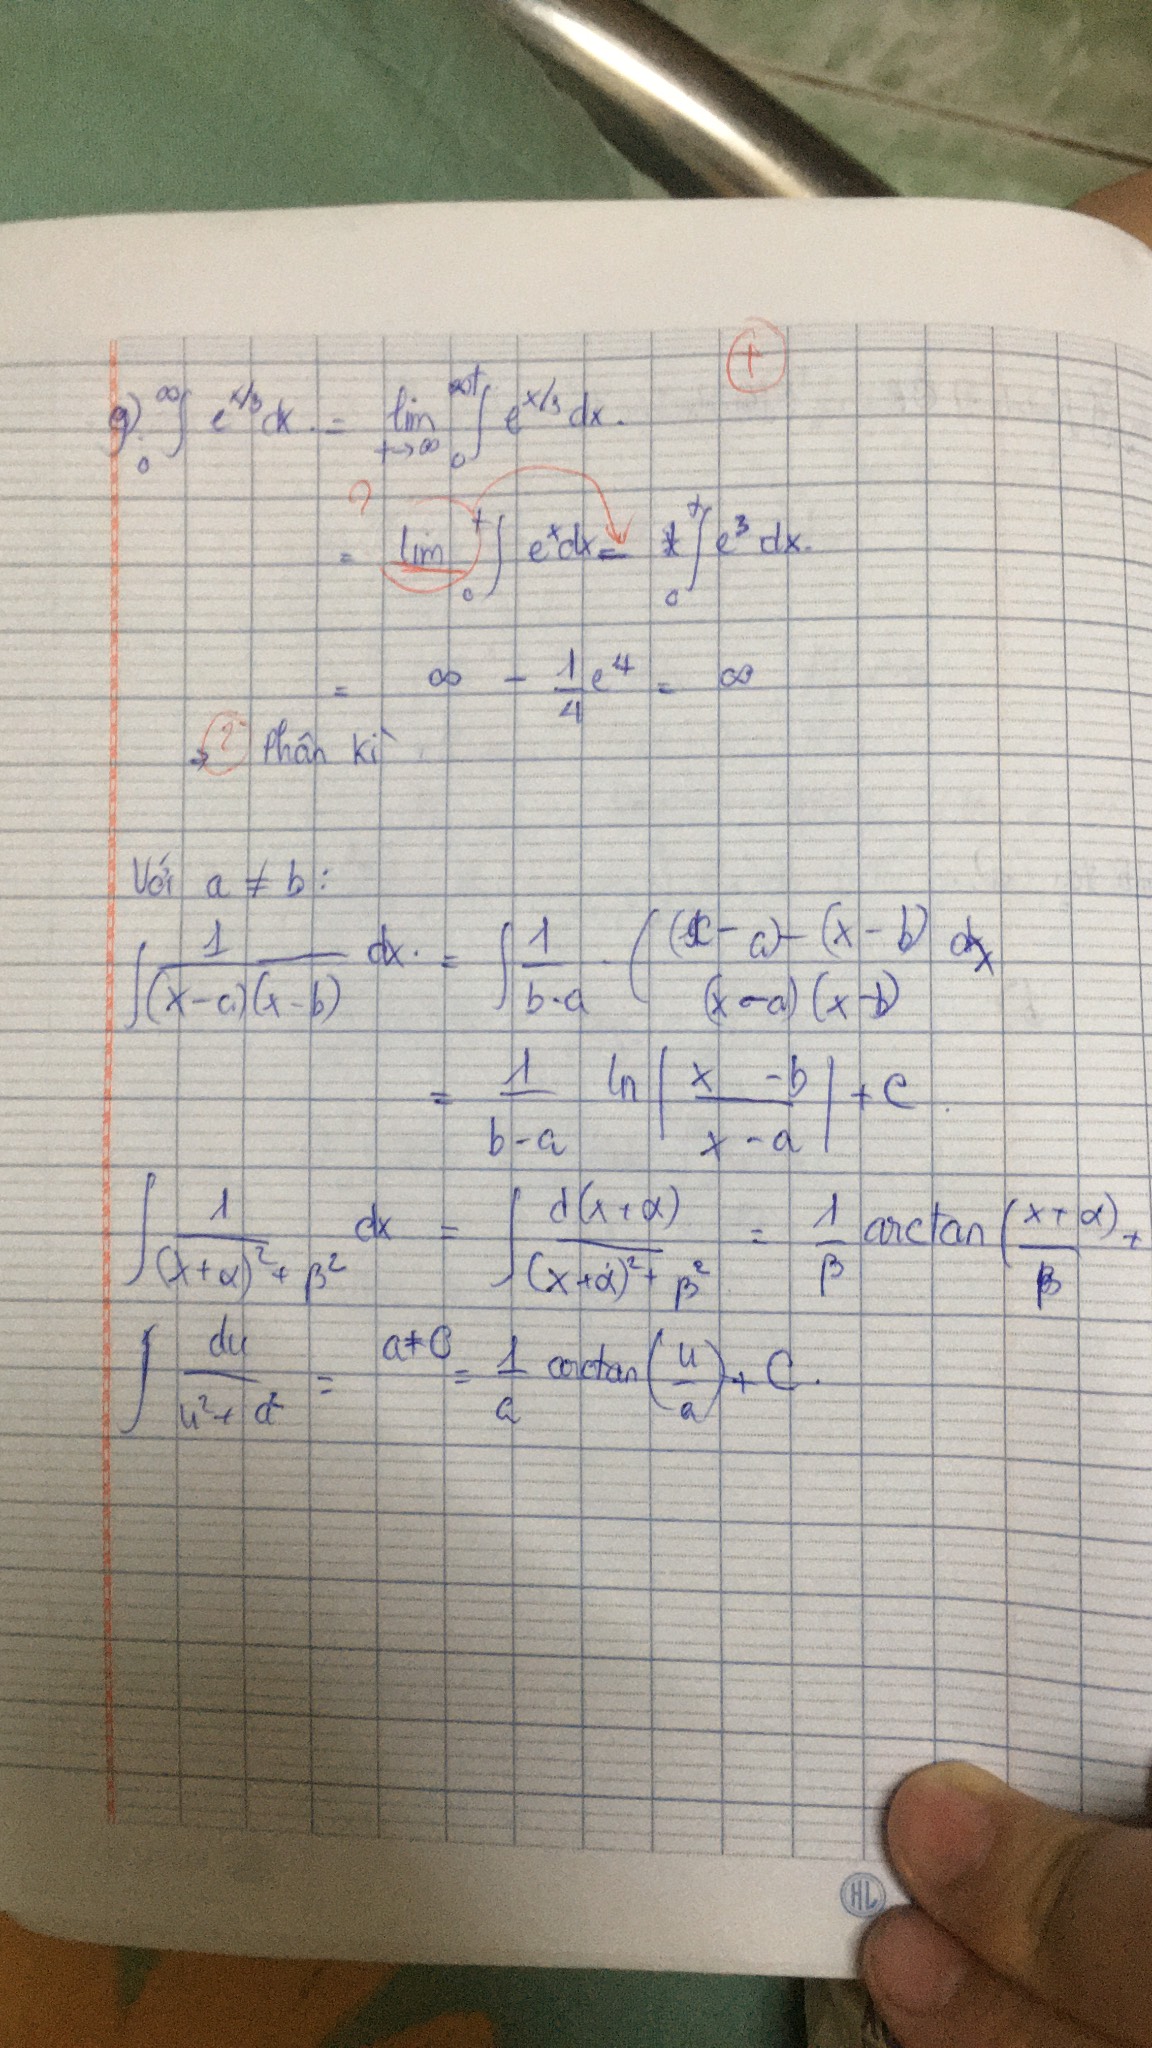 +
g) ∫₀^∞ e^{x/3} dx. = lim_{t→∞} ∫₀^t e^{x/3} dx.
? = lim ∫₀^t e^x dx = ∫₀^t e^3 dx.
= ∞ - 1/4 e^4 = ∞
→ ? Phân kì
Với a ≠ b:
∫ 1/((x-a)(x-b)) dx. = ∫ 1/(b-a) · ((x-a)-(x-b) / (x-a)(x-b) dx
= 1/(b-a) ln |(x-b)/(x-a)| + C
∫ 1/((x+α)²+β²) dx = ∫ d(x+α)/((x+α)²+β²) = 1/β arctan ((x+α)/β) +
∫ du/(u²+a²) = a≠0 = 1/a arctan(u/a) + C.
HL